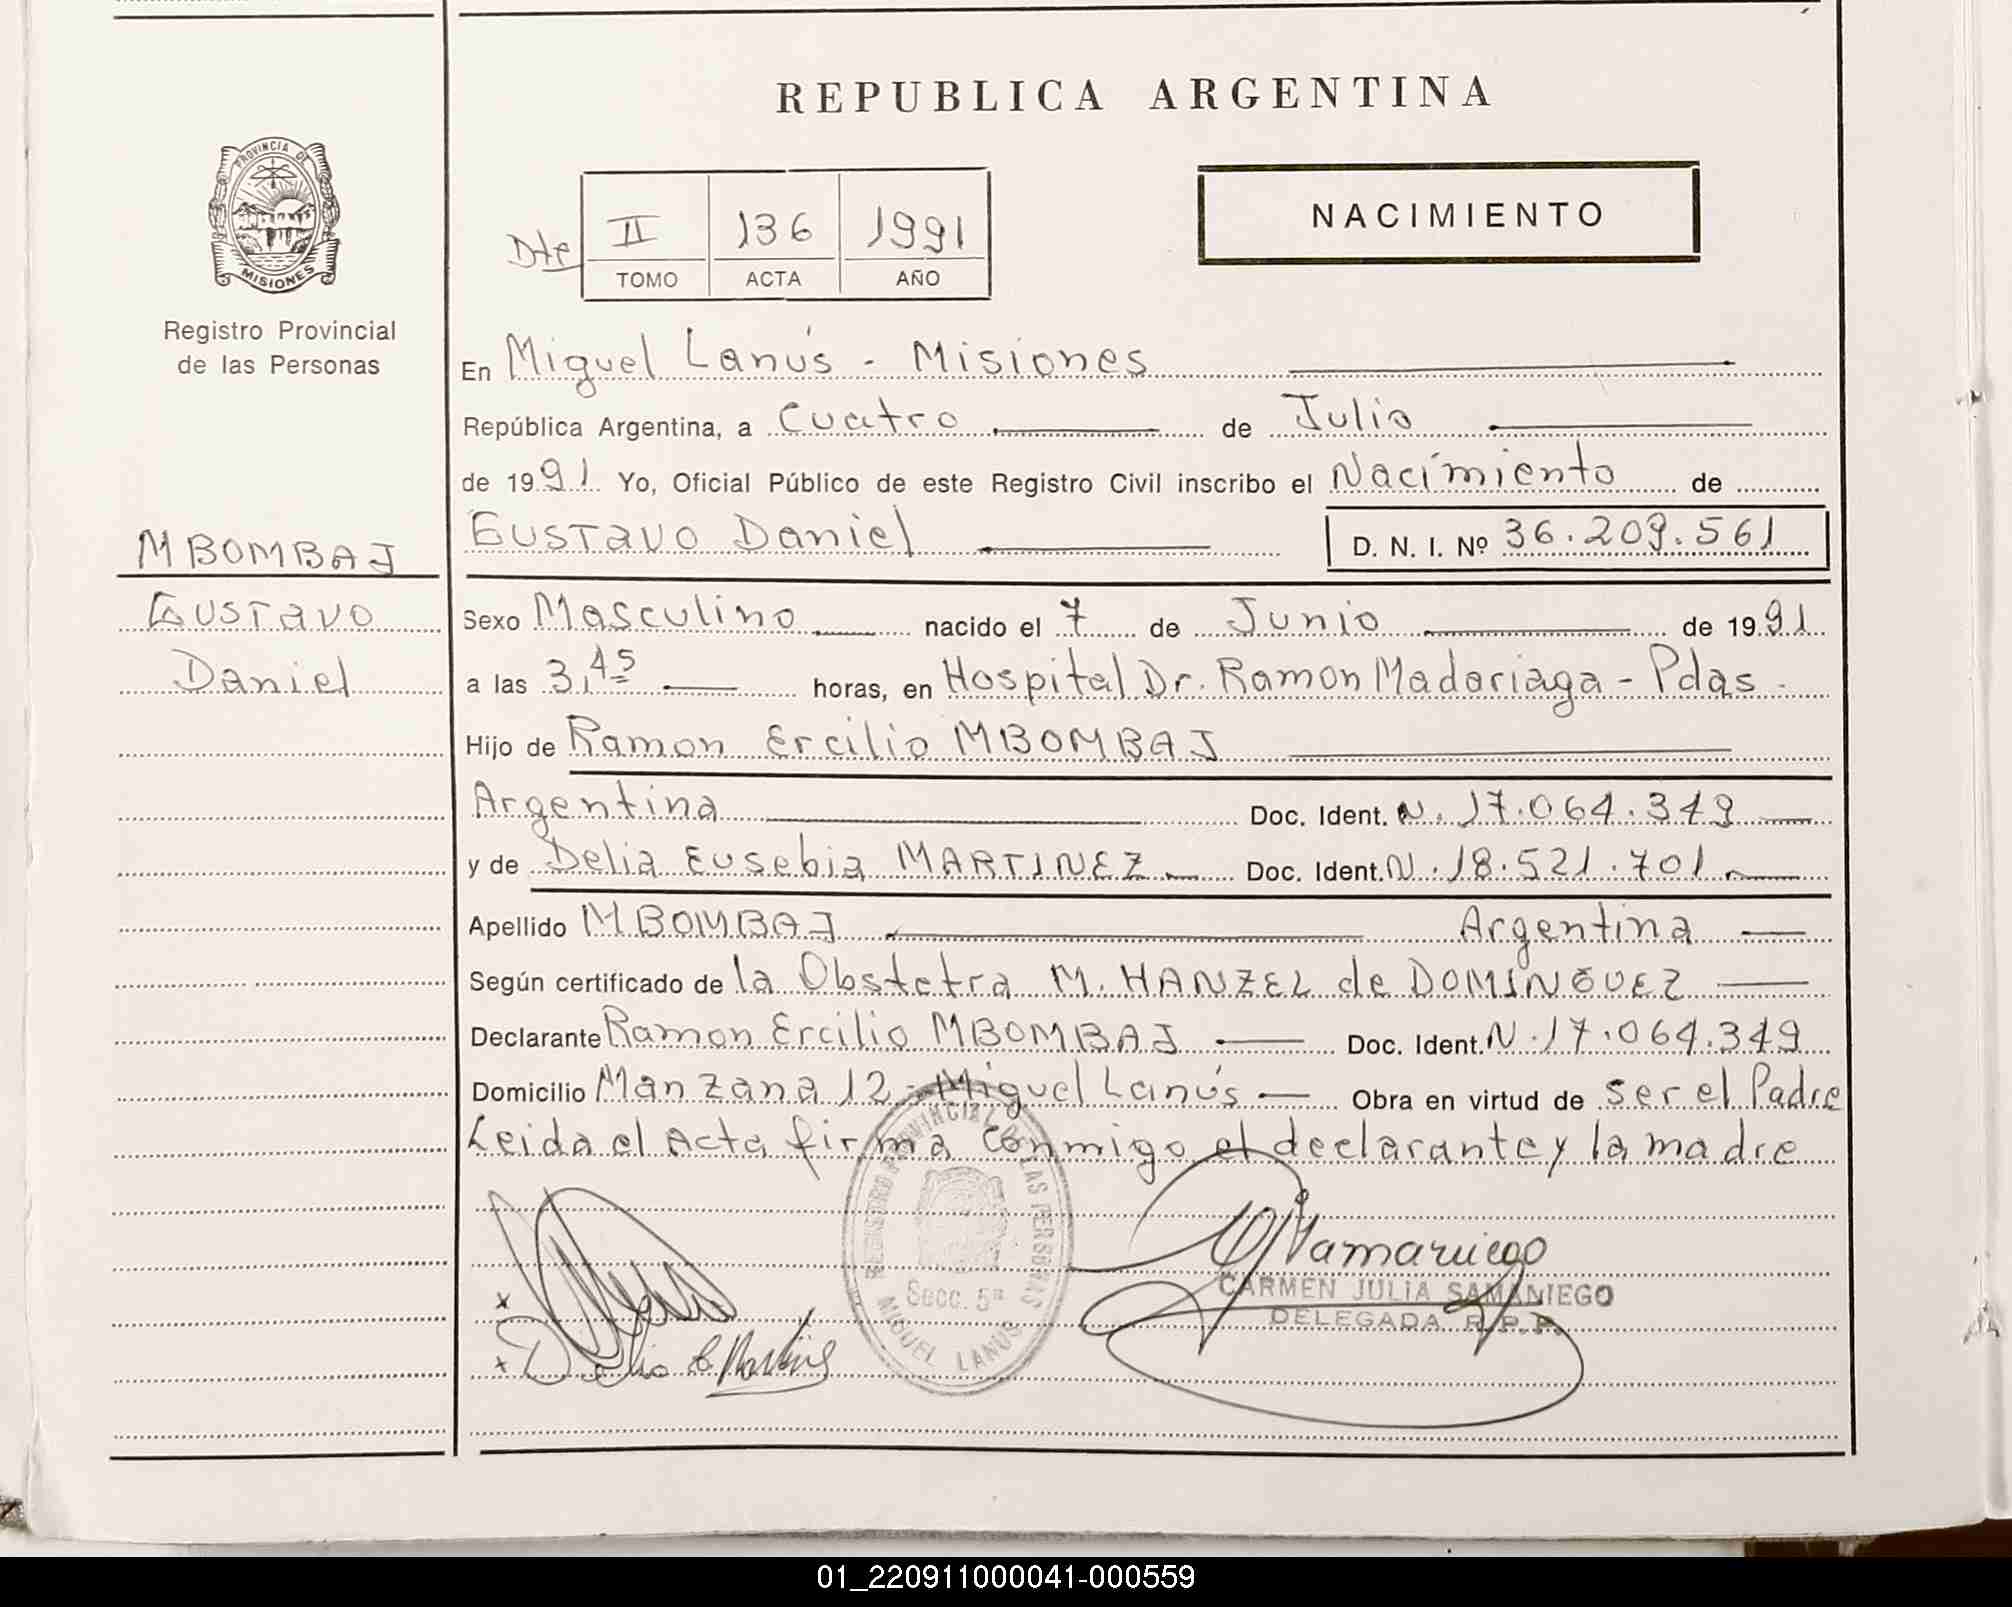 REPUBLICA ARGENTINA
PROVINCIA DE
MISIONES
Registro Provincial
de las Personas
Dte
II 136 1991
TOMO ACTA AÑO
NACIMIENTO
En Miguel Lanús - Misiones
República Argentina, a Cuatro de Julio
de 1991 Yo, Oficial Público de este Registro Civil inscribo el Nacimiento de
MBOMBAJ
Gustavo Daniel D. N. I. Nº 36.209.561
Gustavo
Daniel
Sexo Masculino nacido el 7 de Junio de 1991
a las 3,45 horas, en Hospital Dr. Ramon Madariaga - Pdas.
Hijo de Ramon Ercilio MBOMBAJ
Argentina Doc. Ident. N. 17.064.349
y de Delia Eusebia MARTINEZ Doc. Ident. N. 18.521.701
Apellido MBOMBAJ Argentina
Según certificado de la Obstetra M. HANZEL de DOMINGUEZ
Declarante Ramon Ercilio MBOMBAJ Doc. Ident. N. 17.064.349
Domicilio Manzana 12 - Miguel Lanús Obra en virtud de ser el Padre
Leida el Acta firma conmigo el declarante y la madre
REGISTRO PROVINCIAL DE LAS PERSONAS
Secc. 5ª
MIGUEL LANUS
CARMEN JULIA SAMANIEGO
DELEGADA R.P.P.
01_220911000041-000559